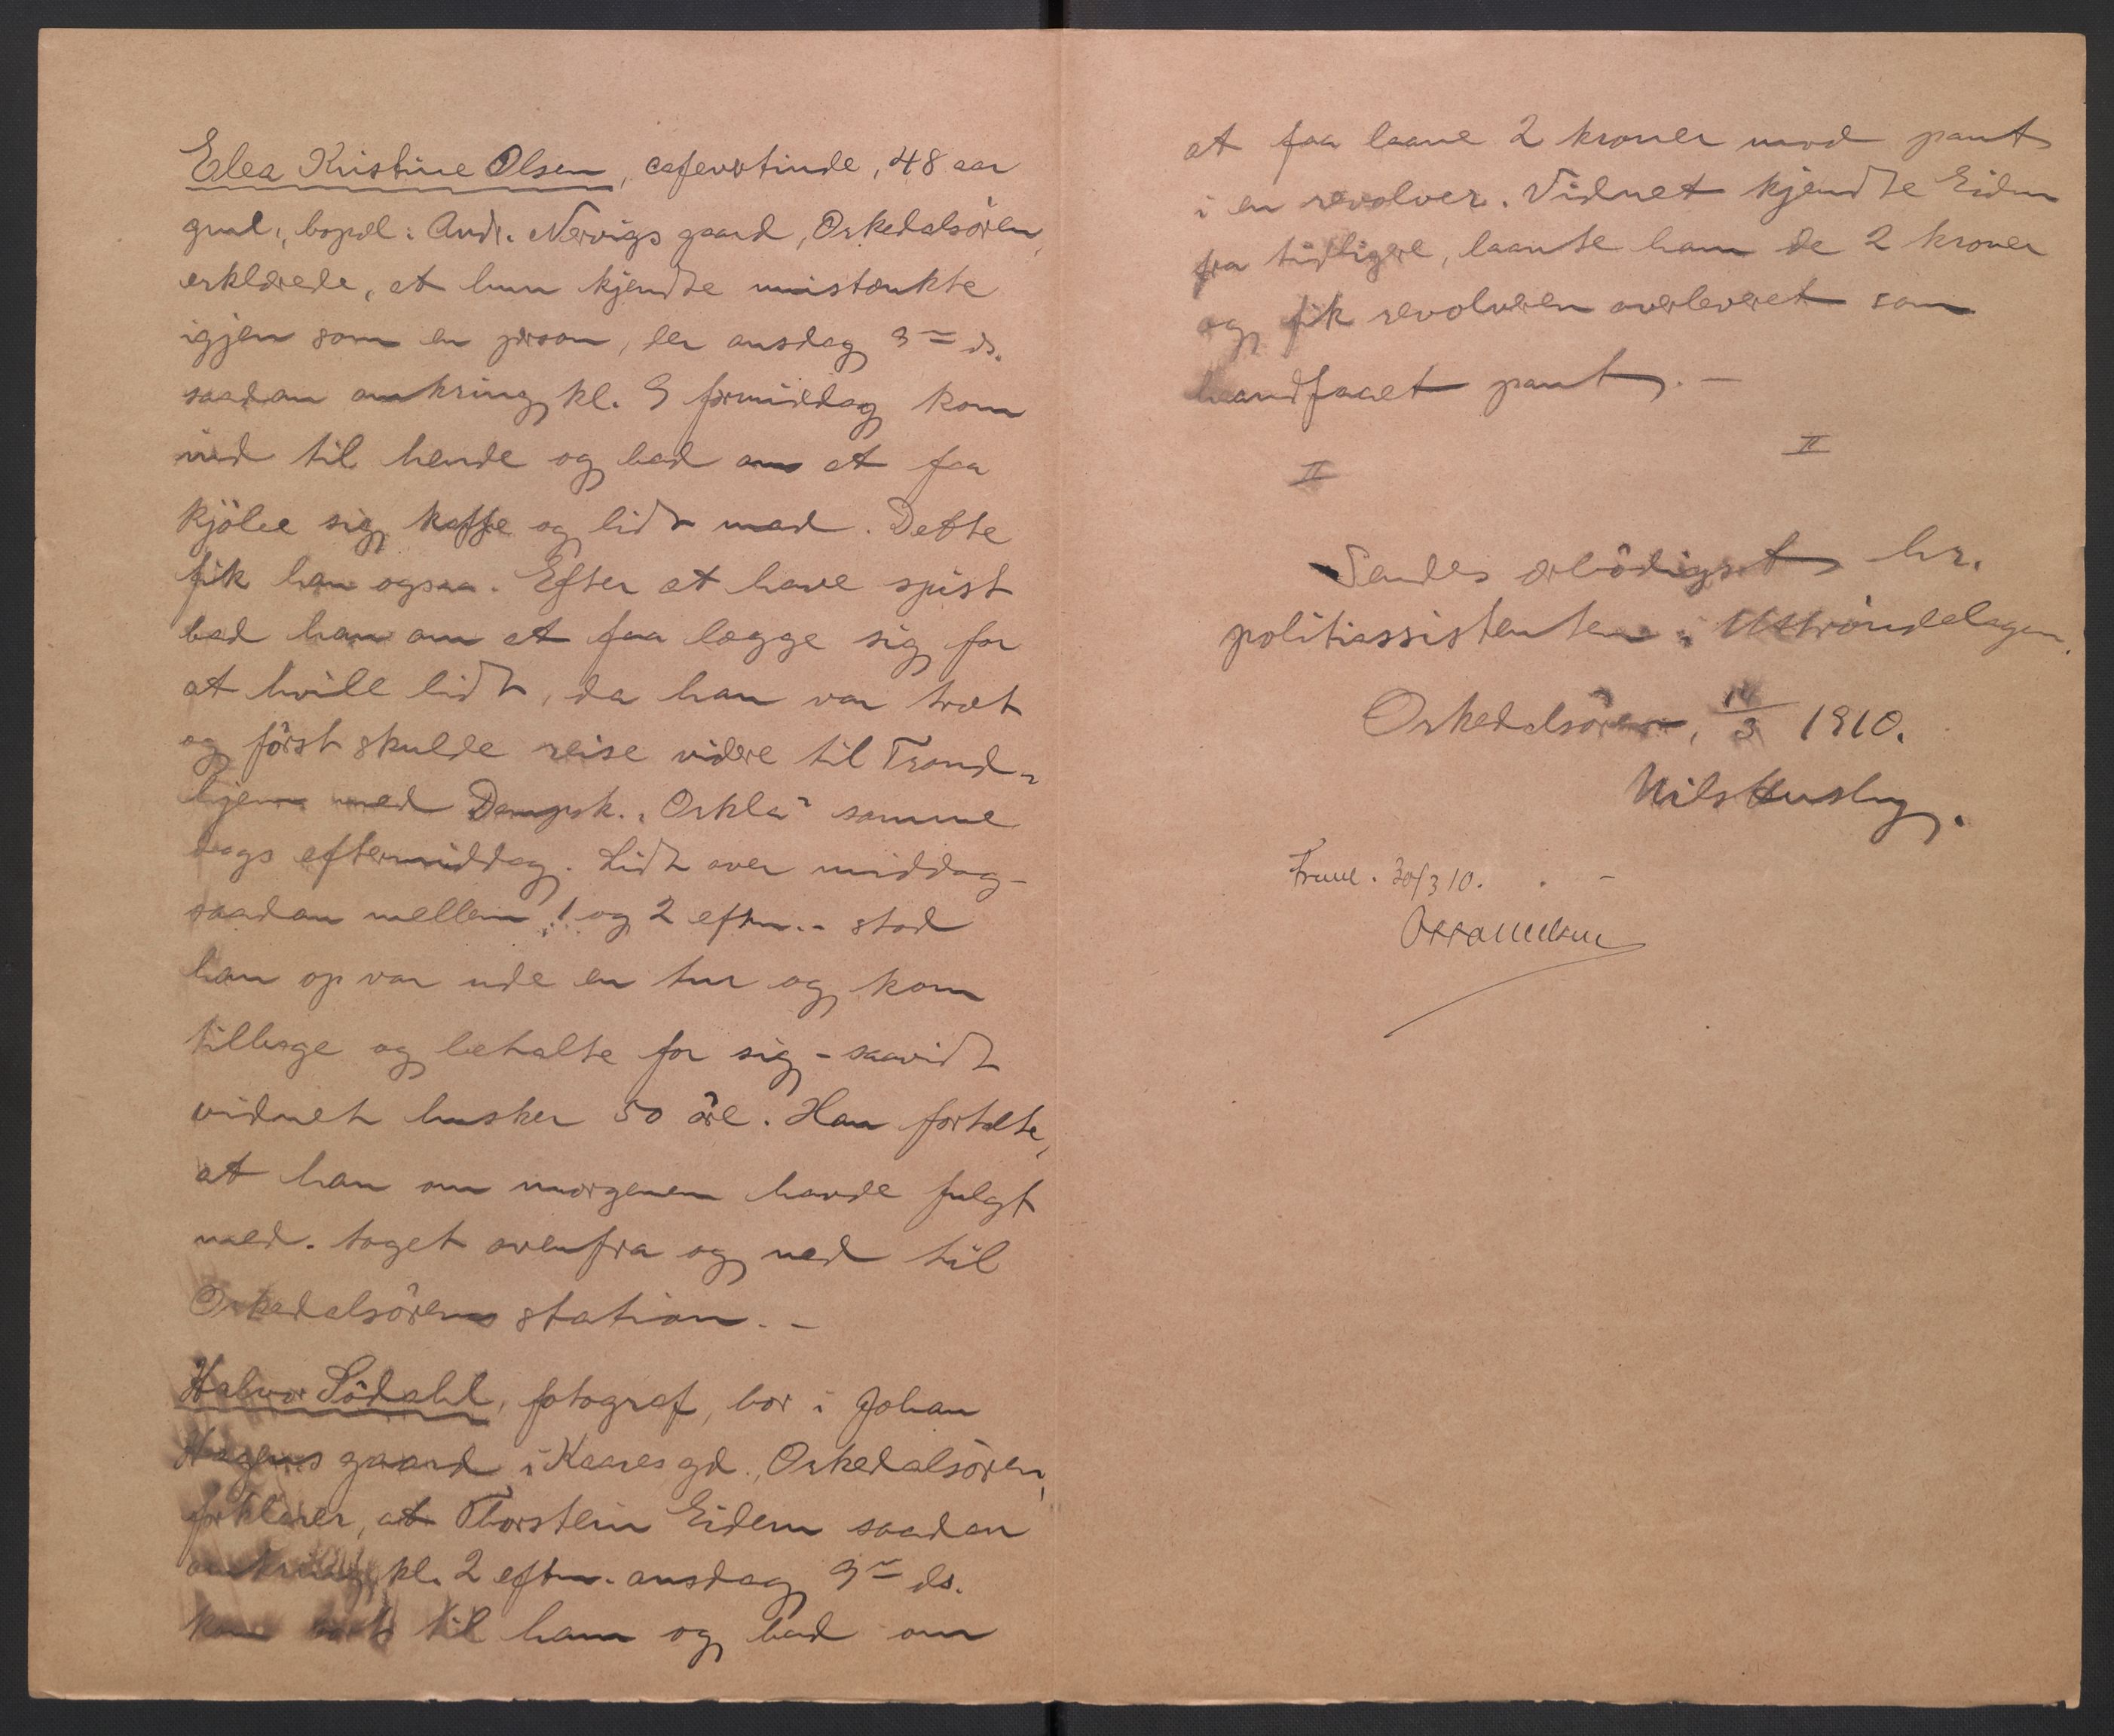 Elea Kristine Olsen, cafevertinde, 48 aar
gml., bopæl: Andr. Nervigs gaard, Orkedalsören,
erklærede, at hun kjendte mistænkte
igjen som en person, der onsdag 9de ds.
saadan omkring kl. 9 formiddag kom
ind til hende og bad om at faa
kjöbe sig kaffe og lidt mad. Dette
fik han ogsaa. Efter at have spist
bad han om at faa lægge sig for
at hvile lidt, da han var træt
og först skulde reise videre til Trond-
hjem med Dampsk. "Orkla" samme
dags eftermiddag. Lidt over middag -
saadan mellem 1 og 2 eftm. - stod
han op var ude en tur og kom
tilbage og betalte for sig - saavidt
vidnet husker 50 öre. Han fortalte,
at han om morgenen havde fulgt
med toget ovenfra og ned til
Orkedalsörens station. -
Halvor Södahl, fotograf, bor i Johan
Hagens gaard i Kaares gd., Orkedalsören,
forklarer, at Thorstein Eidem saadan
omkring kl. 2 eftm. onsdag 9de ds.
kom til ham og bad om
at faa laane 2 kroner mod pant
i en revolver. Vidnet kjendte Eidem
fra tidligere, laante ham de 2 kroner
og fik revolveren overleveret som
haandfaaet pant. -
II II
Sendes ærbödigst hr.
politiassistenten i Uttröndelagen.
Orkedalsören, 14/3 1910.
Nils Husby.
30/3 10.